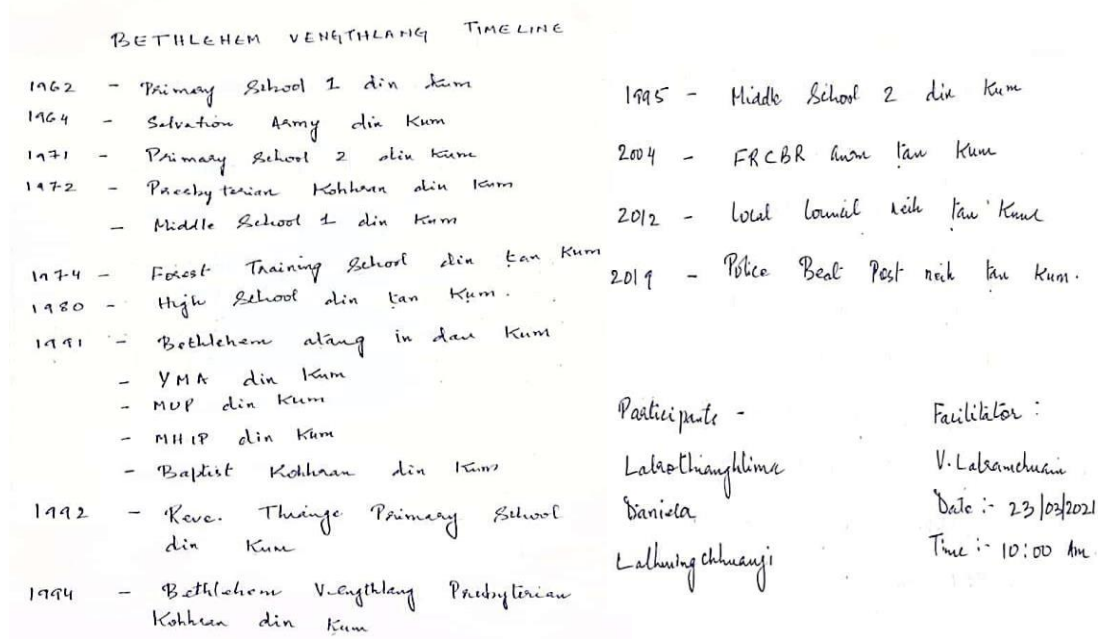 BETHLEHEM VENGTHLANG TIMELINE
1962 - Primary School 1 din kum
1964 - Salvation Army din Kum
1971 - Primary School 2 din kum
1972 - Presbyterian Kohhran din Kum
- Middle School 1 din Kum
1974 - Forest Training School din ṭan Kum
1980 - High School din ṭan Kum.
1991 - Bethlehem aṭang in dan Kum
- YMA din Kum
- MUP din Kum
- MHIP din Kum
- Baptist Kohhran din Kum
1992 - Reve. Thianga Primary School
din Kum
1994 - Bethlehem Vengthlang Presbyterian
Kohhran din Kum
1995 - Middle School 2 din Kum
2004 - FRCBR awm ṭan Kum
2012 - Local Council neih ṭan Kum
2019 - Police Beat Post neih ṭan Kum.
Participants -
Lalrothianghlima
Daniela
Lalhmingchhuanji
Facilitator :
V. Lalramchuani
Date :- 23/03/2021
Time :- 10:00 Am